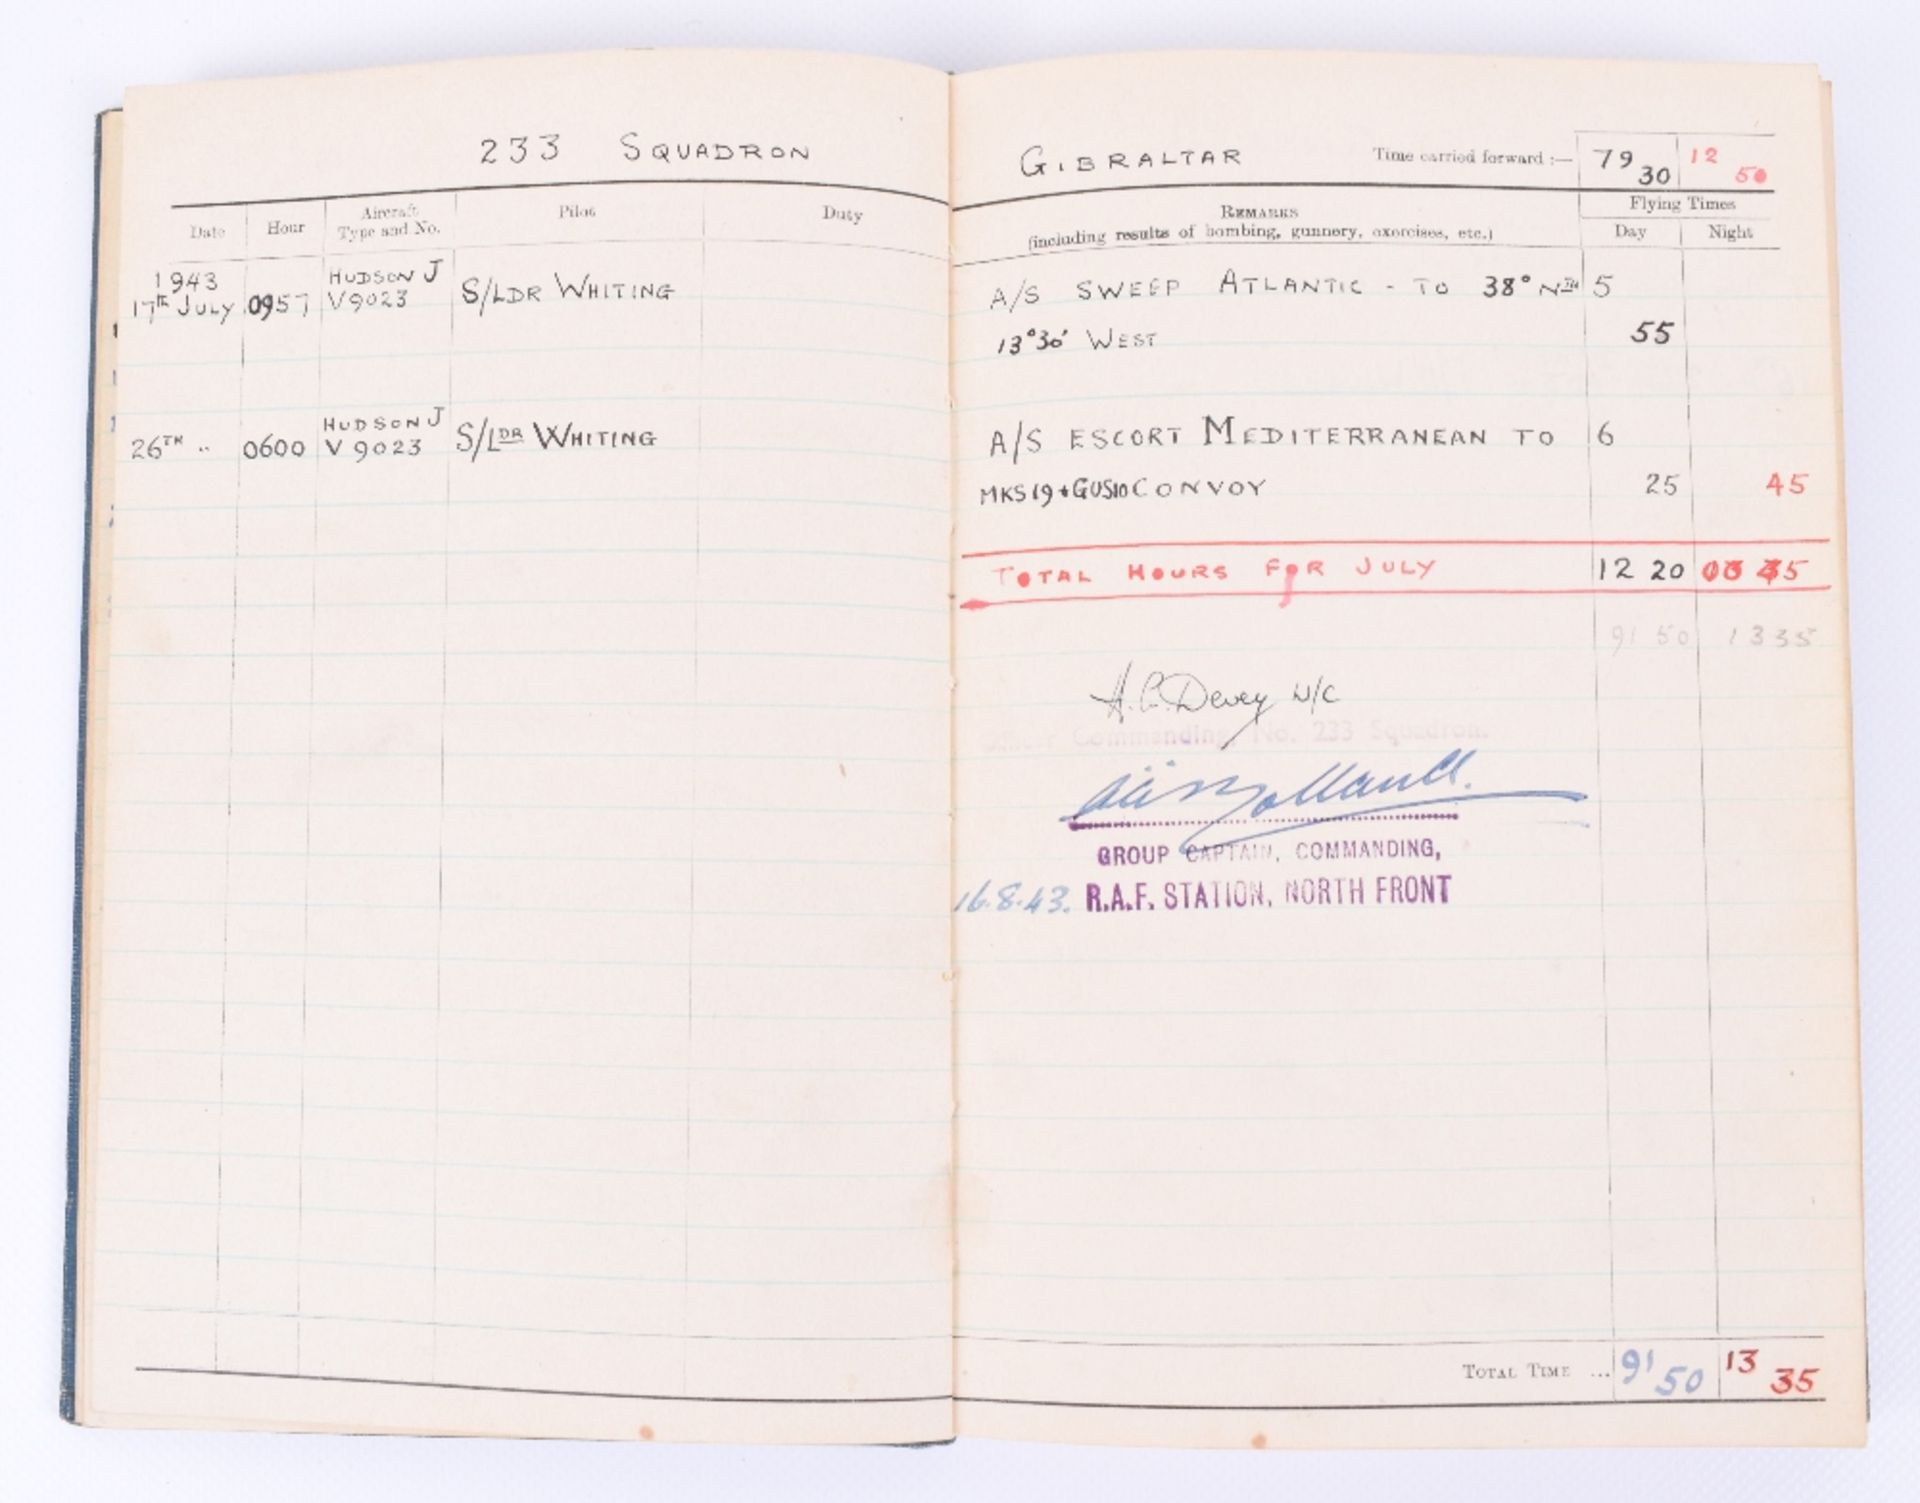 233 SQUADRON
Date Hour Aircraft Type and No. Pilot Duty
1943
17th JULY 0957 HUDSON J V9023 S/LDR WHITING
26TH " 0600 HUDSON J V9023 S/LDR WHITING
GIBRALTAR Time carried forward :— 79 30 12 50
REMARKS
(including results of bombing, gunnery, exercises, etc.)
Flying Times
Day Night
A/S SWEEP ATLANTIC - TO 38° NTH 5
13°30' WEST 55
A/S ESCORT MEDITERRANEAN TO 6
MKS19+GUS10 CONVOY 25 45
TOTAL HOURS FOR JULY 12 20 45
91 50 13 35
H.C. Devey W/C
Officer Commanding, No. 233 Squadron.
GROUP CAPTAIN, COMMANDING,
16.8.43. R.A.F. STATION, NORTH FRONT
TOTAL TIME ... 91 50 13 35